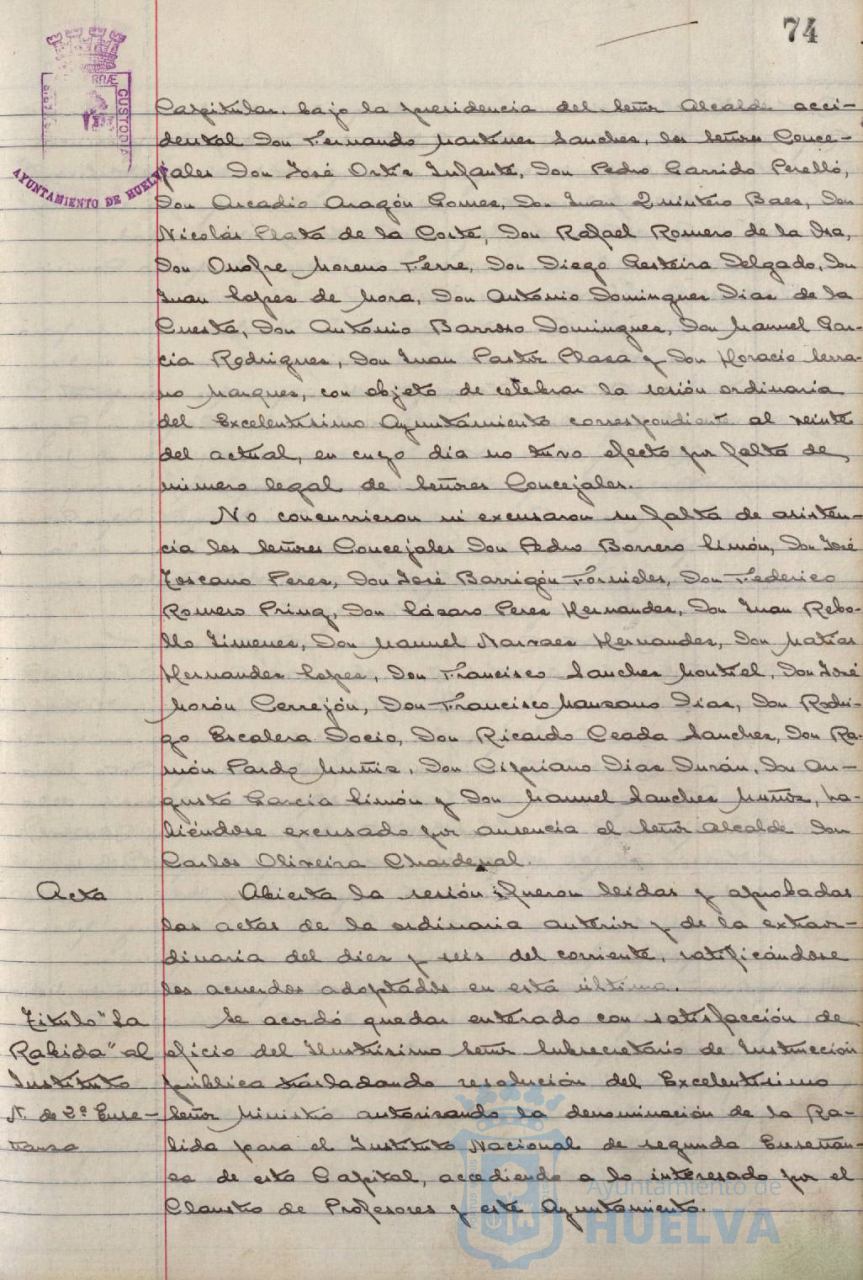 74
CUSTODIA
AYUNTAMIENTO DE HUELVA
Capitular, bajo la presidencia del Señor Alcalde acci-
dental Don Fernando Martinez Sanchez, los Señores Conce-
jales Don José Ortiz Infante, Don Pedro Garrido Perelló,
Don Arcadio Aragón Gomez, Don Juan Quintero Baez, Don
Nicolás Plata de la Corte, Don Rafael Romero de la Osa,
Don Onofre Moreno Ferre, Don Diego Gesteira Delgado, Don
Juan Lopez de Mora, Don Antonio Dominguez Diaz de la
Cuesta, Don Antonio Barroso Dominguez, Don Manuel Gar-
cia Rodriguez, Don Juan Pastor Plaza y Don Horacio Serra-
no Marquez, con objeto de celebrar la sesión ordinaria
del Excelentisimo Ayuntamiento correspondiente al veinte
del actual, en cuyo dia no tuvo efecto por falta de
número legal de Señores Concejales.
No concurrieron ni excusaron su falta de asisten-
cia los Señores Concejales Don Pedro Borrero Limón, Don José
Toscano Perez, Don José Barrigón Fornieles, Don Federico
Romero Don Lázaro Perez Hernandez, Don Juan Rebo-
llo Jimenez, Don Manuel Narvaez Hernandez, Don Matias
Hernandez Lopez, Don Francisco Sanchez Montiel, Don José
Morón Cerrejón, Don Francisco Manzano Diaz, Don Rodri-
go Escalera Docio, Don Ricardo Ceada Sanchez, Don Ra-
món Pardo Muñiz, Don Cipriano Diaz Durán, Don Au-
gusto Garcia Limón y Don Manuel Sanchez Muñoz, ha-
biéndose excusado por ausencia el Señor Alcalde Don
Carlos Oliveira Chardenal.
Acta
Abierta la sesión fueron leidas y aprobadas
las actas de la ordinaria anterior y de la extraor-
dinaria del diez y seis del corriente, ratificándose
los acuerdos adoptados en esta última.
Titulo "La
Rabida" al
Instituto
N. de 2ª Ense-
ñanza
Se acordó quedar enterado con satisfacción de
oficio del Ilustrisimo Señor Subsecretario de Instrucción
pública trasladando resolución del Excelentisimo
Señor Ministro autorizando la denominación de la Ra-
bida para el Instituto Nacional de segunda Enseñan-
za de esta Capital, accediendo a lo interesado por el
Claustro de Profesores y este Ayuntamiento.
Ayuntamiento de
HUELVA